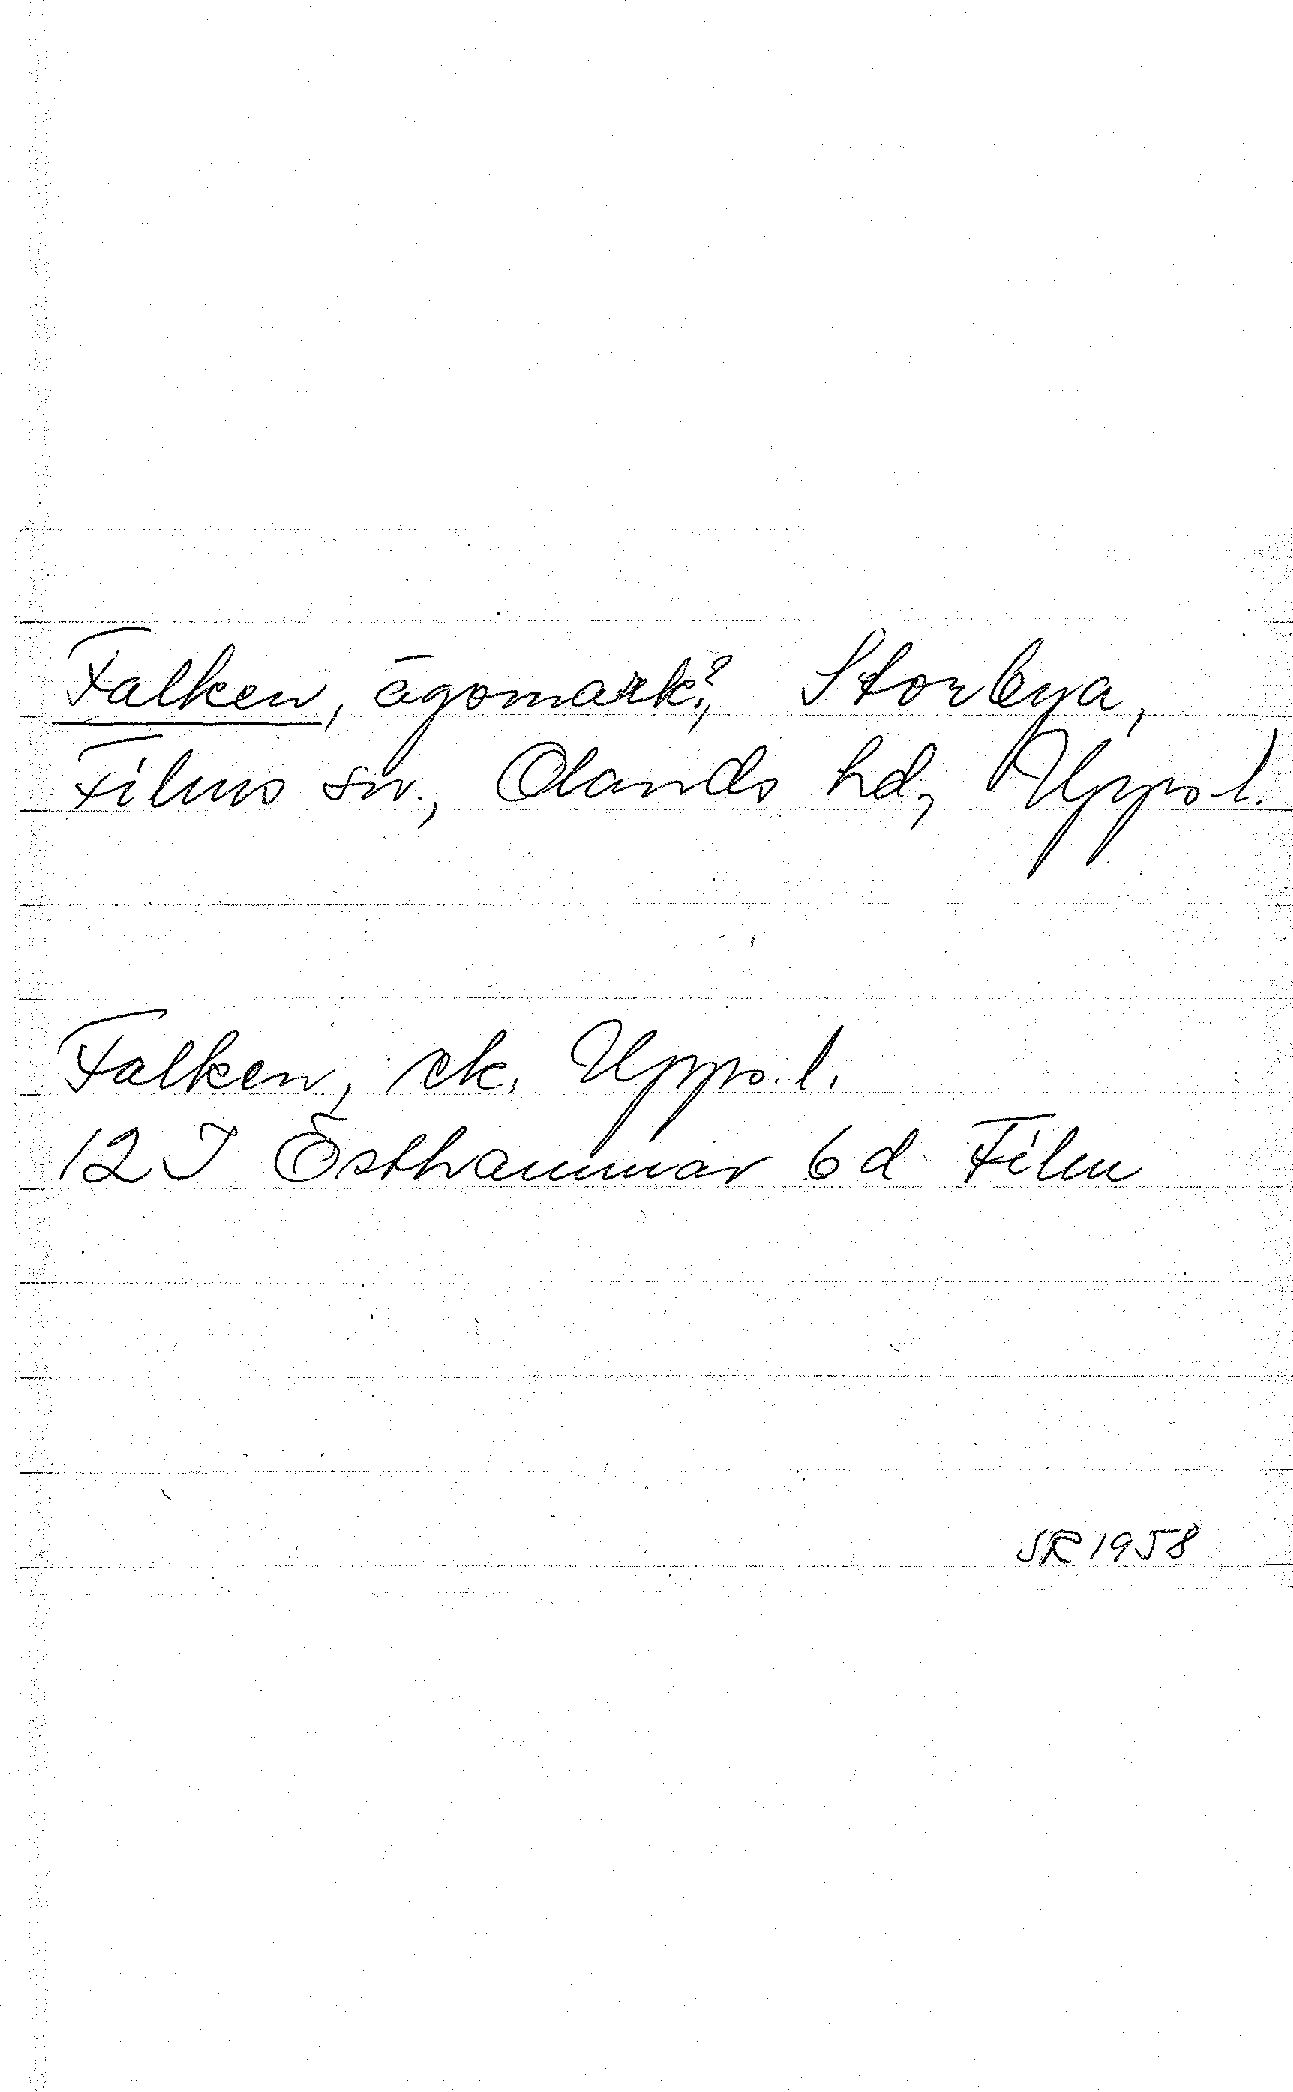 Falken, ägomark?, Storbya,
Films sn., Olands hd, Upps. l.
Falken, ek. Upps. l.
12 I Östhammar 6d Film
SR 1958